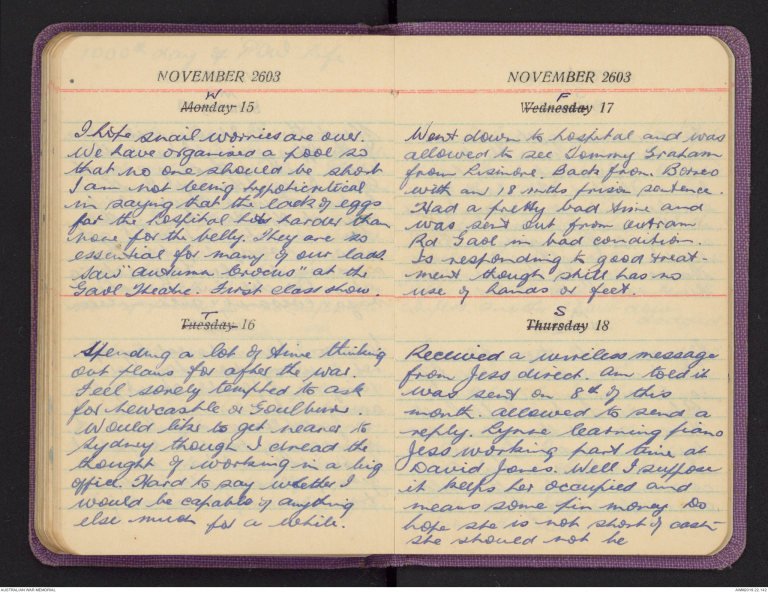 NOVEMBER 2603
W
Monday 15
I hope snail worries are over.
We have organised a pool so
that no one should be short
I am not being hypocritical
in saying that the lack of eggs
for the hospital hits harder than
none for the belly. They are so
essential for many of our lads.
Saw "Autumn Crocus" at the
Gaol Theatre. First class show.
T
Tuesday 16
Spending a lot of time thinking
out plans for after the war.
Feel sorely tempted to ask
for Newcastle or Goulburn.
Would like to get nearer to
Sydney though I dread the
thought of working in a big
office. Hard to say whether I
would be capable of anything
else much for a while.
NOVEMBER 2603
F
Wednesday 17
Went down to hospital and was
allowed to see Tommy Graham
from Lismore. Back from Borneo
with an 18 mths prison sentence.
Had a pretty bad time and
was sent out from Outram
Rd Gaol in bad condition.
Is responding to good treat-
ment though still has no
use of hands or feet.
S
Thursday 18
Received a wireless message
from Jess direct. Am told it
was sent on 8th of this
month. Allowed to send a
reply. Lynne learning piano
Jess working part time at
David Jones. Well I suppose
it keeps her occupied and
means some pin money. Do
hope she is not short of cash
she should not be
AUSTRALIAN WAR MEMORIAL
AWM2019.22.142